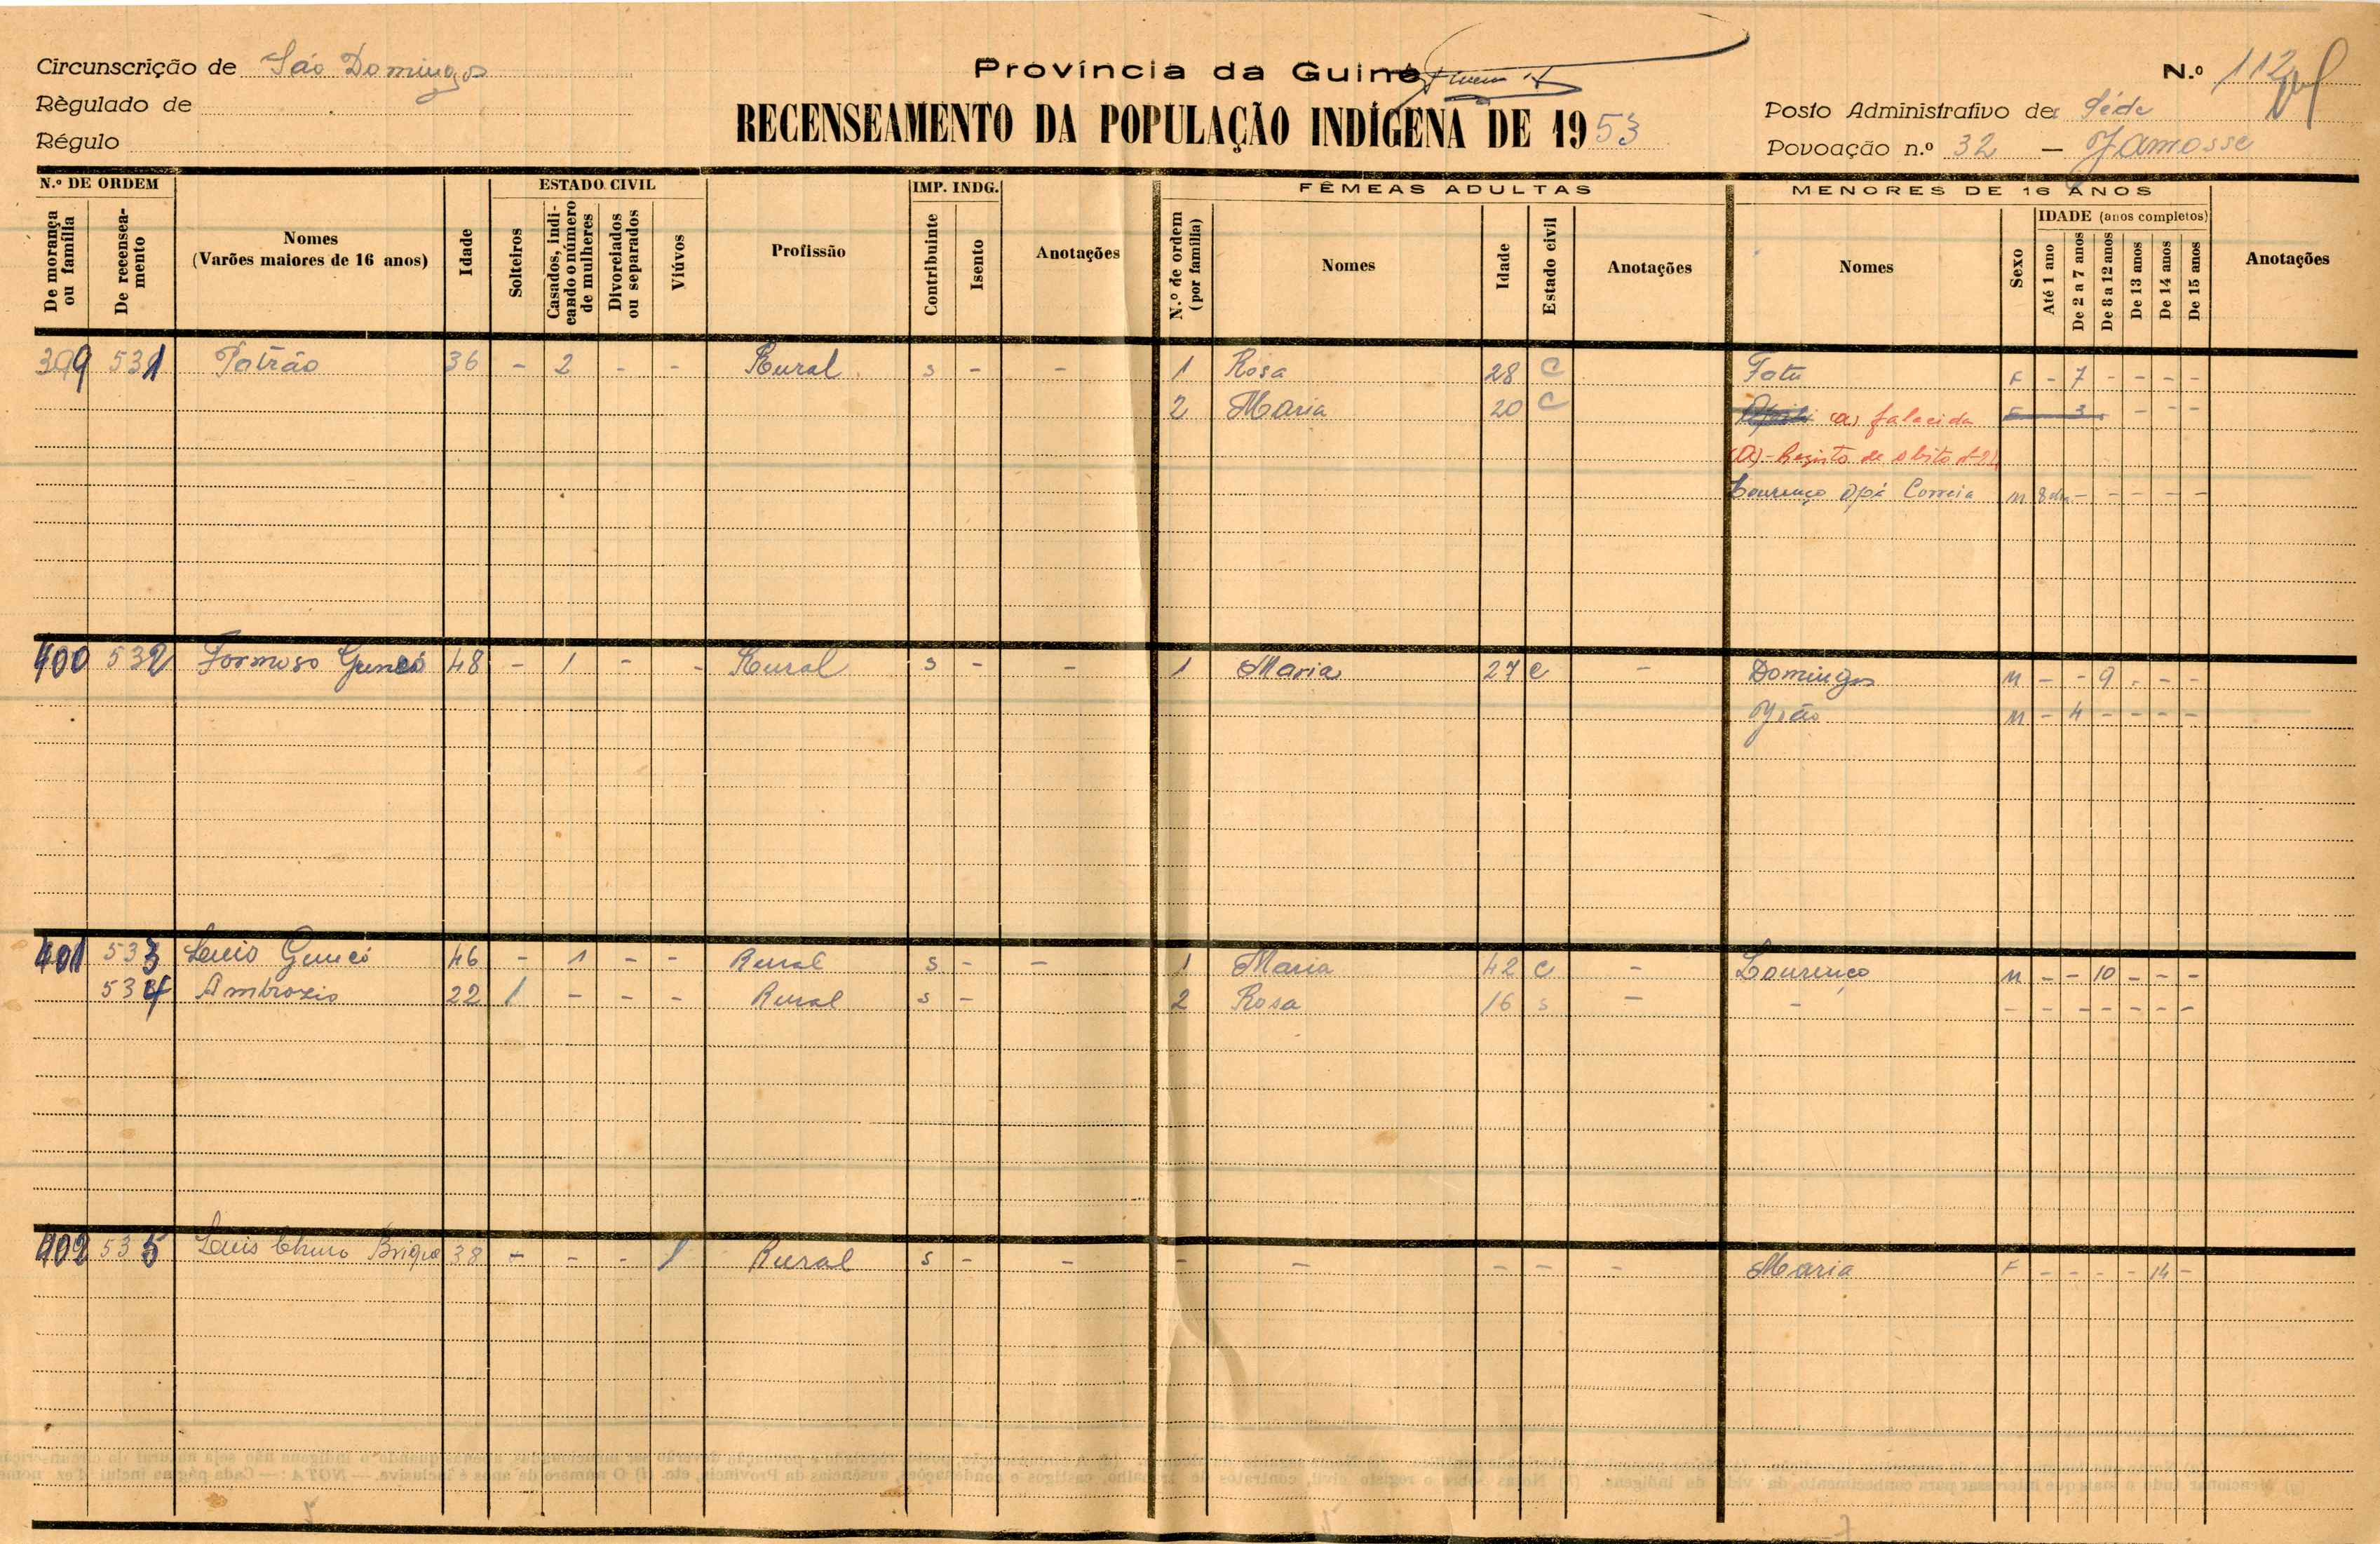 Circunscrição de São Domingos
Règulado de
Régulo
Província da Guiné
RECENSEAMENTO DA POPULAÇÃO INDÍGENA DE 1953
N.º 112
Posto Administrativo de Séde
Povoação n.º 32 — Jamosse
N.º DE ORDEM
De morança ou família
De recenseamento
Nomes
(Varões maiores de 16 anos)
Idade
ESTADO CIVIL
Solteiros
Casados, indicando o número de mulheres
Divorciados ou separados
Viúvos
Profissão
IMP. INDG.
Contribuinte
Isento
Anotações
FÊMEAS ADULTAS
N.º de ordem (por família)
Nomes
Idade
Estado civil
Anotações
MENORES DE 16 ANOS
Nomes
Sexo
IDADE (anos completos)
Até 1 ano
De 2 a 7 anos
De 8 a 12 anos
De 13 anos
De 14 anos
De 15 anos
Anotações
399 531 Patrão 36 - 2 - - Rural s - - 1 Rosa 28 C Fatu F - 7 - - - -
2 Maria 20 C (a) falecida F 3 - - -
(a) - Registo de obito
Lourenço Opá Correia M 8 - - - - -
400 532 Formoso 48 - 1 - - Rural s - - 1 Maria 27 C - Domingos M - - 9 - - -
João M - 4 - - - -
401 533 Luis 46 - 1 - - Rural s - - 1 Maria 42 C - Lourenço M - - 10 - - -
534 Ambrozio 22 1 - - - Rural s - 2 Rosa 16 s - - - - - - - - -
402 535 Luis 38 - - - 1 Rural s - - - - - - - Maria F - - - - 14 -